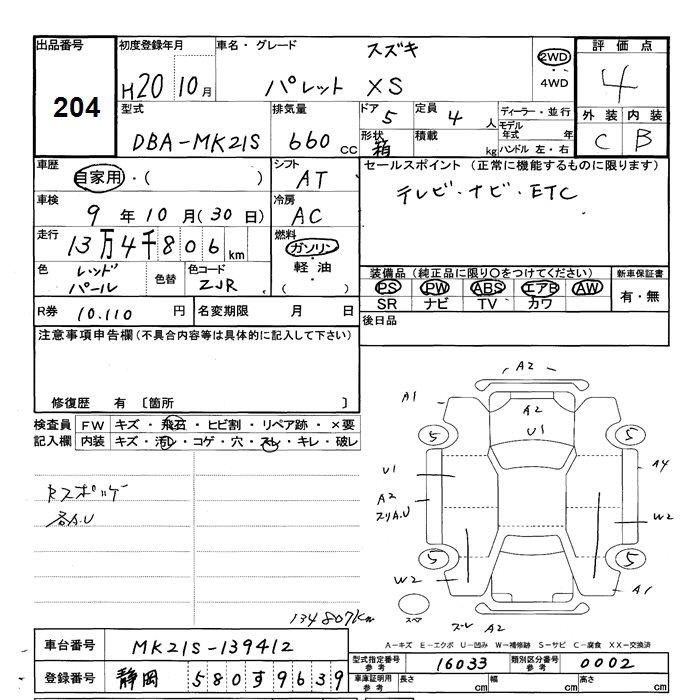 出品番号 初度登録年月 車名・グレード スズキ 2WD ・ 4WD 評価点
204 H20 10月 パレット XS 4
型式 排気量 ドア 5 定員 4人 ディーラー・並行 外装 内装
DBA-MK21S 660cc 形状 箱 積載 kg モデル年式 年 ハンドル 左・右 C B
車歴 自家用・( ) シフト AT セールスポイント (正常に機能するものに限ります)
車検 9年10月(30日) 冷房 AC テレビ・ナビ・ETC
走行 13万4千806km 燃料 ガソリン・軽油・( )
色 レッドパール 色替 色コード ZJR 装備品(純正品に限り〇をつけてください) 新車保証書
PS PW ABS エアB AW 有・無
SR ナビ TV カワ
R券 10.110円 名変期限 月 日 後日品
注意事項申告欄(不具合内容等は具体的に記入して下さい)
修復歴 有 〔箇所 〕
検査員 FW キズ・飛石・ヒビ割・リペア跡・×要
記入欄 内装 キズ・汚レ・コゲ・穴・スレ・キレ・破レ
各A.U
A2
A1 A2 U1
5 5
U1 A4
A2 A.U W2
5 5
W2 A1
A2
134807km
車台番号 MK21S-139412
A-キズ E-エクボ U-凹み W-補修跡 S-サビ C-腐食 XX-交換済
型式指定番号 参考 16033 類別区分番号 参考 0002
登録番号 静岡 580 す 9639
車庫証明用 参考 長さ cm 幅 cm 高さ cm